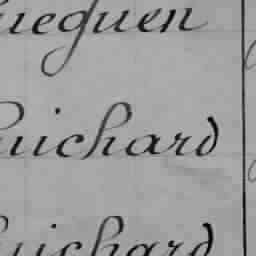 ueguen
uichard
uichard